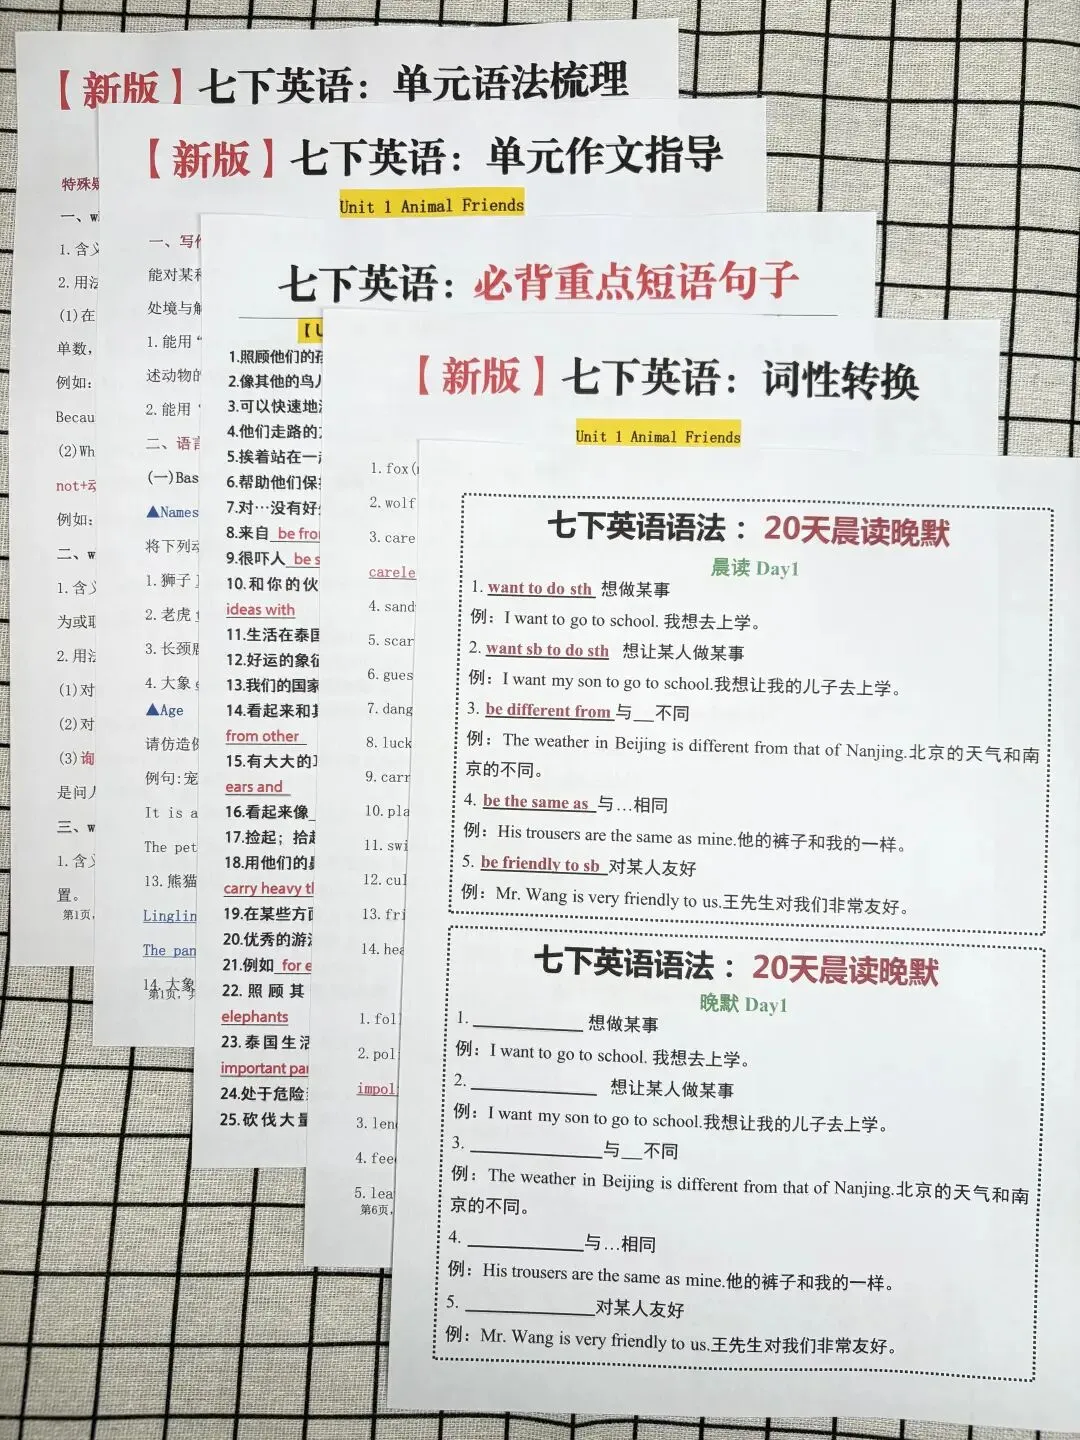 【新版】七下英语：单元语法梳理
特殊疑
一、w
1.含义
2.用法
(1)在
单数，
例如：
Becau
(2)Wh
not+动
例如：
二、w
1.含义
为或取
2.用法
(1)对
(2)对
(3)询
是问人
三、w
1.含义
置。
第1页，
【新版】七下英语：单元作文指导
Unit 1 Animal Friends
一、写作
能对某种
处境与解
1.能用“
述动物的
2.能用“
二、语言
(一)Bas
▲Names
将下列动
1.狮子
2.老虎
3.长颈鹿
4.大象
▲Age
请仿造例
例句:宠
It is a
The pet
13.熊猫
Linglin
The pan
14.大象
第1页，共
七下英语：必背重点短语句子
【U
1.照顾他们的孩
2.像其他的鸟儿
3.可以快速地
4.他们走路的方
5.挨着站在一起
6.帮助他们保持
7.对…没有好
8.来自 be from
9.很吓人 be s
10.和你的伙
ideas with
11.生活在泰国
12.好运的象征
13.我们的国家
14.看起来和其
from other
15.有大大的耳
ears and
16.看起来像
17.捡起；拾起
18.用他们的鼻
carry heavy th
19.在某些方面
20.优秀的游泳
21.例如 for e
22.照顾其
elephants
23.泰国生活
important par
24.处于危险
25.砍伐大量
【新版】七下英语：词性转换
Unit 1 Animal Friends
1.fox(
2.wolf
3.care
carele
4.sand
5.scar
6.gues
7.dang
8.luck
9.carr
10.pla
11.swi
12.cul
13.fri
14.hea
1.fol
2.pol
impol
3.len
4.fee
5.lea
第6页，
七下英语语法：20天晨读晚默
晨读 Day1
1. want to do sth 想做某事
例：I want to go to school. 我想去上学。
2. want sb to do sth 想让某人做某事
例：I want my son to go to school.我想让我的儿子去上学。
3. be different from 与__不同
例：The weather in Beijing is different from that of Nanjing.北京的天气和南
京的不同。
4. be the same as 与…相同
例：His trousers are the same as mine.他的裤子和我的一样。
5. be friendly to sb 对某人友好
例：Mr. Wang is very friendly to us.王先生对我们非常友好。
七下英语语法：20天晨读晚默
晚默 Day1
1. ____________ 想做某事
例：I want to go to school. 我想去上学。
2. ______________ 想让某人做某事
例：I want my son to go to school.我想让我的儿子去上学。
3. ______________与__不同
例：The weather in Beijing is different from that of Nanjing.北京的天气和南
京的不同。
4. ____________与…相同
例：His trousers are the same as mine.他的裤子和我的一样。
5. ______________对某人友好
例：Mr. Wang is very friendly to us.王先生对我们非常友好。